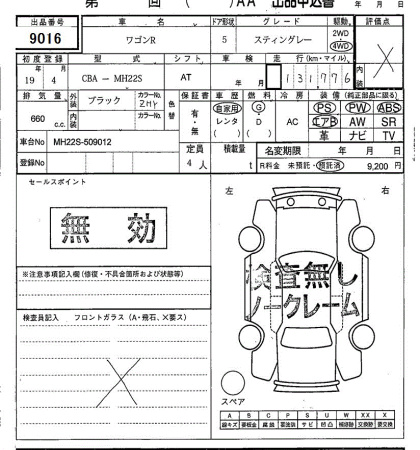 第 回 ( )AA 出品申込書 年 月 日
出品番号 車名 ドア形状 グレード 駆動 評価点
9016 ワゴンR 5 スティングレー 2WD 4WD
初度登録 型式 シフト 車検 走行(km・マイル) 内装
19 年 4 月 CBA － MH22S AT 年 月 131,776
排気量 外装 ブラック カラーNo. ZMY 色替 保証書 車歴 燃料 冷房 装備(純正部品に限る)
660 c.c. 内装 カラーNo. 有・無 自家用 レンタ ( ) G・D ( ) AC PS PW ABS
エアB AW SR
革 ナビ TV
車台No MH22S-509012 定員 積載量 名変期限 年 月 日
登録No 4 人 t R料金 未預託・預託済 9,200 円
セールスポイント
無効
左 右
※注意事項記入欄(修復・不具合箇所および状態等)
検査無し
ノークレーム
検査員記入 フロントガラス(A・飛石、×要ス)
スペア
A B C P S U W XX X
線キズ 要板金 腐蝕 要塗装 サビ 凹凸 補修跡 交換跡 要交換